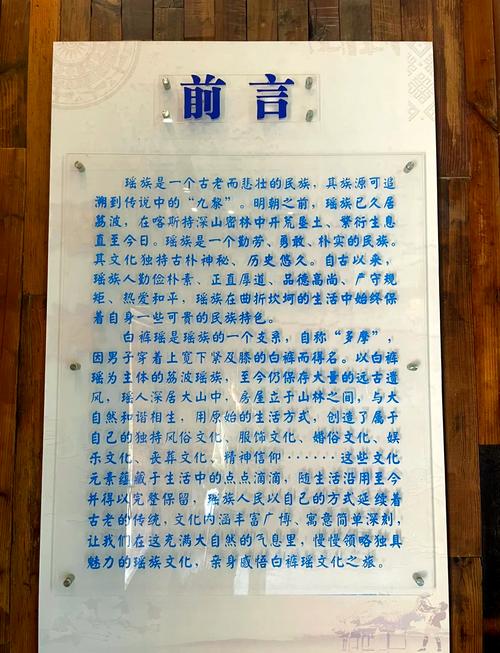 前言
瑶族是一个古老而悲壮的民族，其族源可追
溯到传说中的“九黎”。明朝之前，瑶族已久居
荔波，在喀斯特深山密林中开荒垦土、繁衍生息
直至今日。瑶族是一个勤劳、勇敢、朴实的民族。
其文化独特古朴神秘、历史悠久。自古以来，
瑶族人勤俭朴素、正直厚道、品德高尚、严守规
矩、热爱和平，瑶族在曲折坎坷的生活中始终保
着自身一些可贵的民族特色。
白裤瑶是瑶族的一个支系，自称“多摩”，
因男子穿着上宽下紧及膝的白裤而得名。以白裤
瑶为主体的荔波瑶族，至今仍保存大量的远古遗
风，瑶人深居大山中，房屋立于山林之间，与大
自然和谐相生，用原始的生活方式，创造了属于
自己的独特风俗文化、服饰文化、婚俗文化、娱
乐文化、丧葬文化、精神信仰………这些文化
元素蕴藏于生活中的点点滴滴，随生活沿用至今
并得以完整保留，瑶族人民以自己的方式延续着
古老的传统，文化内涵丰富广博、寓意简单深刻，
让我们在这充满大自然的气息里，慢慢领略独具
魅力的瑶族文化，亲身感悟白裤瑶文化之旅。